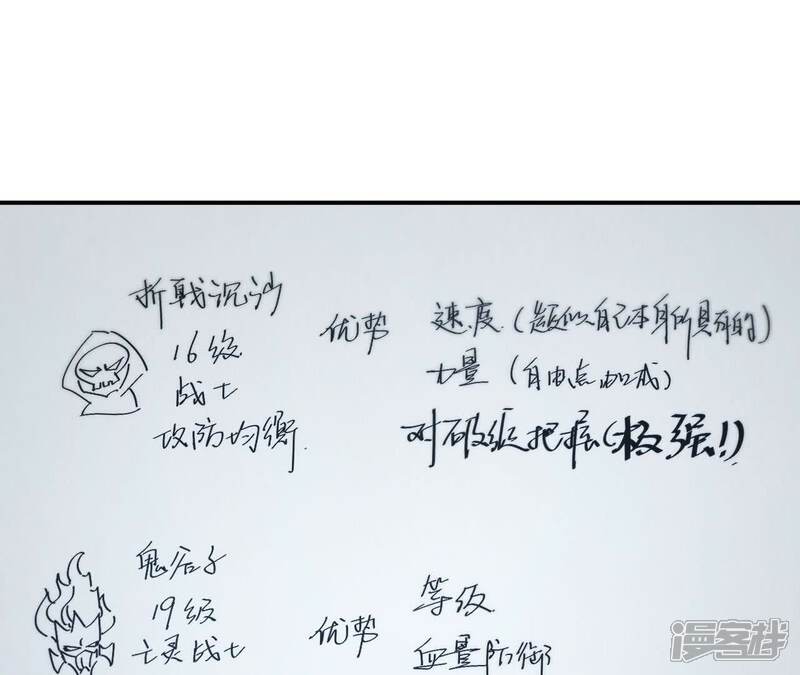 折戟沉沙
16级
战士
攻防均衡
优势
速度(疑似自己本身所具有的)
力量(自由点加成)
对破绽把握(极强!)
鬼谷子
19级
亡灵战士
优势
等级
血量防御
漫客栈